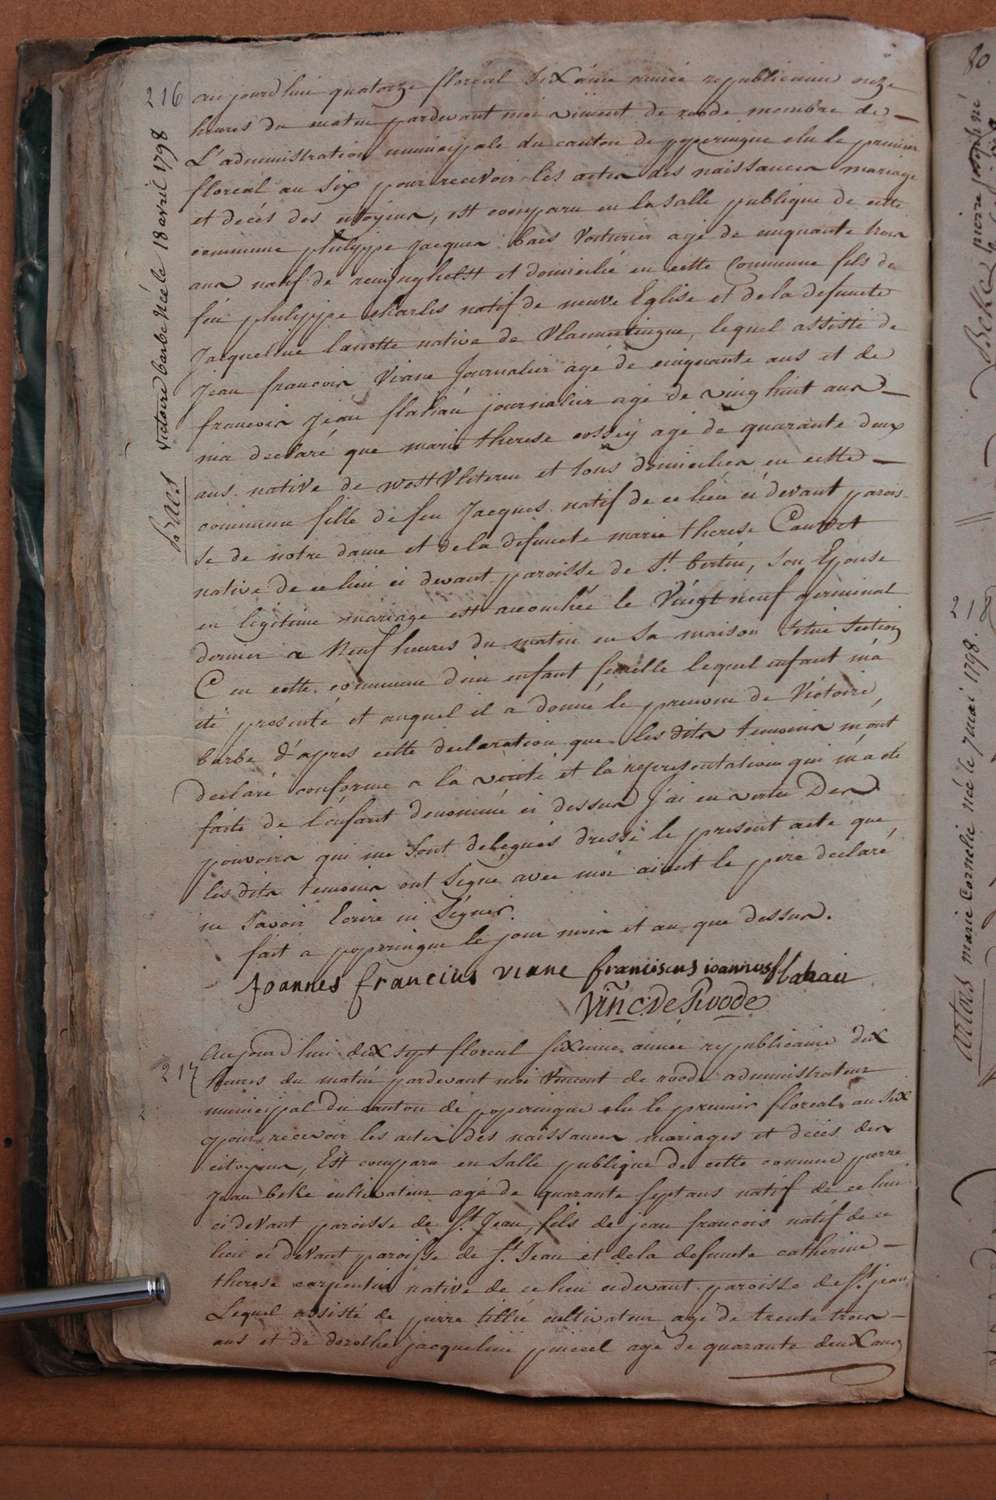 216
Baes Victoire barbe née le 18 avril 1798
aujourd'hui quatorze floreal sixéme année republicaine onze
heures du matin pardevant moi vincent de roode membre de
L'administration municipale du canton de poperingue elu le premier
floreal an six pour recevoir les actes des naissances mariage
et decés des citoyens, est comparu en la salle publique de cette
commune philippe jacques baes voiturier agé de cinquante trois
ans natif de reninghelst et domicilié en cette commune fils de
feu philippe charles natif de neuve Eglise et de la defuncte
jacqueline lanotte native de Vlamertingue, lequel assisté de
jean francois Viane journalier agé de cinquante ans et de
francois jean flahau journalier agé de vingt huit ans
ma declaré que marie therese cossey agé de quarante deux
ans native de west Vleteren et tous domiciliés en cette
commune fille de feu jacques natif de ce lieu ci devant parois
se de notre dame et de la defuncte marie therese Cauwet
native de ce lieu ci devant paroisse de St. bertin, son Epouse
en légitime mariage est accouchée le Vingt neuf germinal
dernier a Neuf heures du matin en sa maison sitüe section
C en cette commune d'un enfant femelle lequel enfant m'a
été presenté et auquel il a donné le prenom de Victoire
barbe d'apres cette declaration que les dits temoins m'ont
declaré conforme a la verité et la representation qui m'a eté
faite de l'enfant denommé ci dessus j'ai en vertu Des
pouvoirs qui me sont delegués dressé le present acte que
les dits temoins ont signé avec moi aiant le pere declaré
ne savoir Ecrire ni signer.
fait a poperingue le jour mois et an que dessus.
Joannes francius viane franciscus joannes flahau
Vinc De Roode
217
Aujourd'hui dix sept floreal sixieme année republicaine dix
heures du matin pardevant moi Vincent de roode administrateur
municipal Du canton de poperingue elu le premier floreal an six
pour recevoir les actes des naissances mariages et décés des
citoyens, Est comparu en salle publique de cette commune pierre
jean belle cultivateur agé de quarante sept ans natif de ce lieu
ci devant paroisse de St. Jean, fils de jean francois natif de ce
lieu ci devant paroisse de St. Jean et de la defuncte catherine
therese carpentier native de ce lieu cidevant paroisse de St. jean
Lequel assisté de pierre tillié cultivateur agé de trente trois
ans et de dorothé jacqueline agé de quarante deux ans
80
218
Artois marie cornelie née le 7 mai 1798.